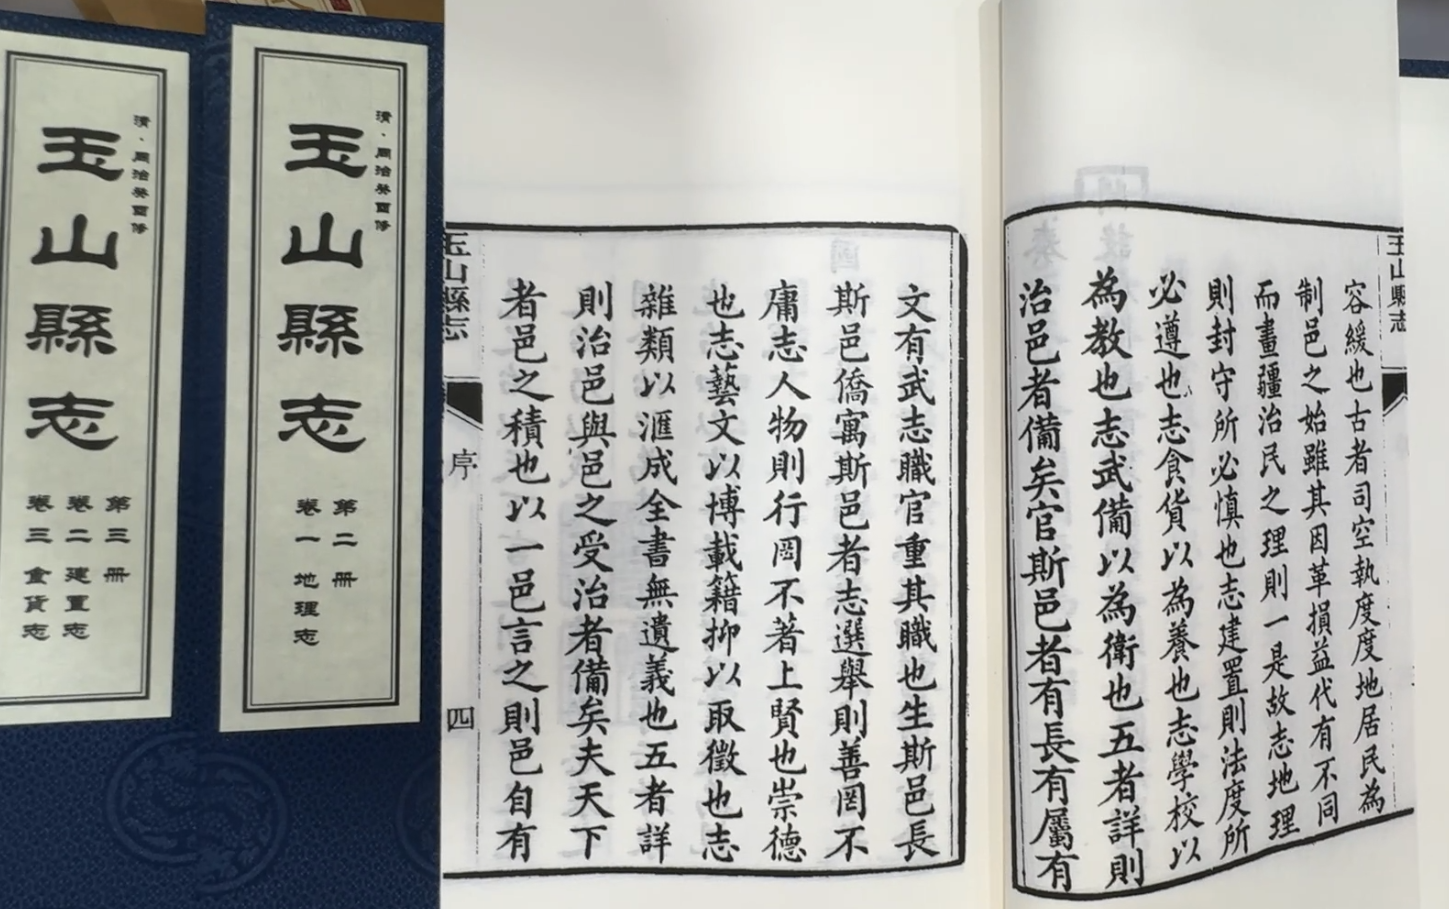 清·同治癸酉修
玉山縣志
第二册
卷一 地理志
清·同治癸酉修
玉山縣志
第三册
卷二 建置志
卷三 食貨志
玉山縣志
容緩也古者司空執度度地居民為
制邑之始雖其因革損益代有不同
而畫疆治民之理則一是故志地理
則封守所必慎也志建置則法度所
必遵也志食貨以為養也志學校以
為教也志武備以為衛也五者詳則
治邑者備矣官斯邑者有長有屬有
文有武志職官重其職也生斯邑長
斯邑僑寓斯邑者志選舉則善罔不
庸志人物則行罔不著上賢也崇德
也志藝文以博載籍抑以取徵也志
雜類以滙成全書無遺義也五者詳
則治邑與邑之受治者備矣夫天下
者邑之積也以一邑言之則邑自有
玉山縣志
序
四